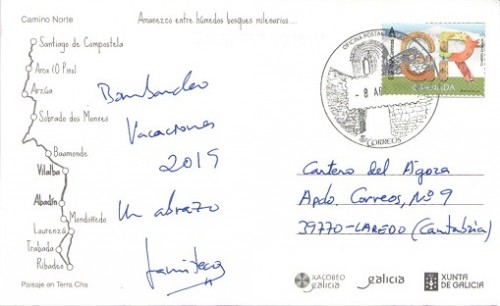 Camino Norte
Amanezco entre húmedos bosques milenarios...
Santiago de Compostela
Arca (O Pino)
Arzúa
Sobrado dos Monxes
Baamonde
Vilalba
Abadín
Mondoñedo
Lourenzá
Trabada
Ribadeo
Paisaje en Terra Chá
Vacaciones
2019
Un abrazo
OFICINA POSTAL
CORREOS
Cartero del Ágora
Apdo. Correos, Nº 9
39770-LAREDO (Cantabria)
XACOBEO
galicia
galicia
XUNTA
DE GALICIA